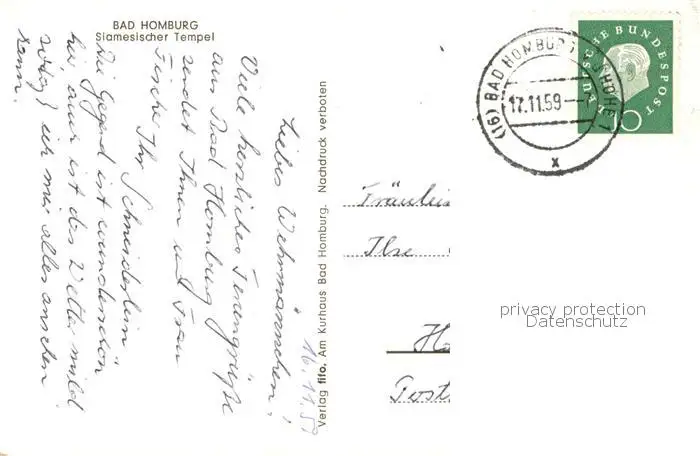 BAD HOMBURG
Siamesischer Tempel
Liebes Wehrmännchen!
Viele herzliche Feriengrüße
aus Bad Homburg
sendet Ihnen und Frau
Tische Ihr Schneiderlein
Die Gegend ist wunderschön
hier, auch ist das Wetter mild
ich mir alles ansehen
kann.
16.11.59
Verlag fifo, Am Kurhaus Bad Homburg. Nachdruck verboten
(16) BAD HOMBURG V D HÖHE 1
17.11.59
x
DEUTSCHE BUNDESPOST
Fräulein
Ilse
Ho
Post
privacy protection
Datenschutz